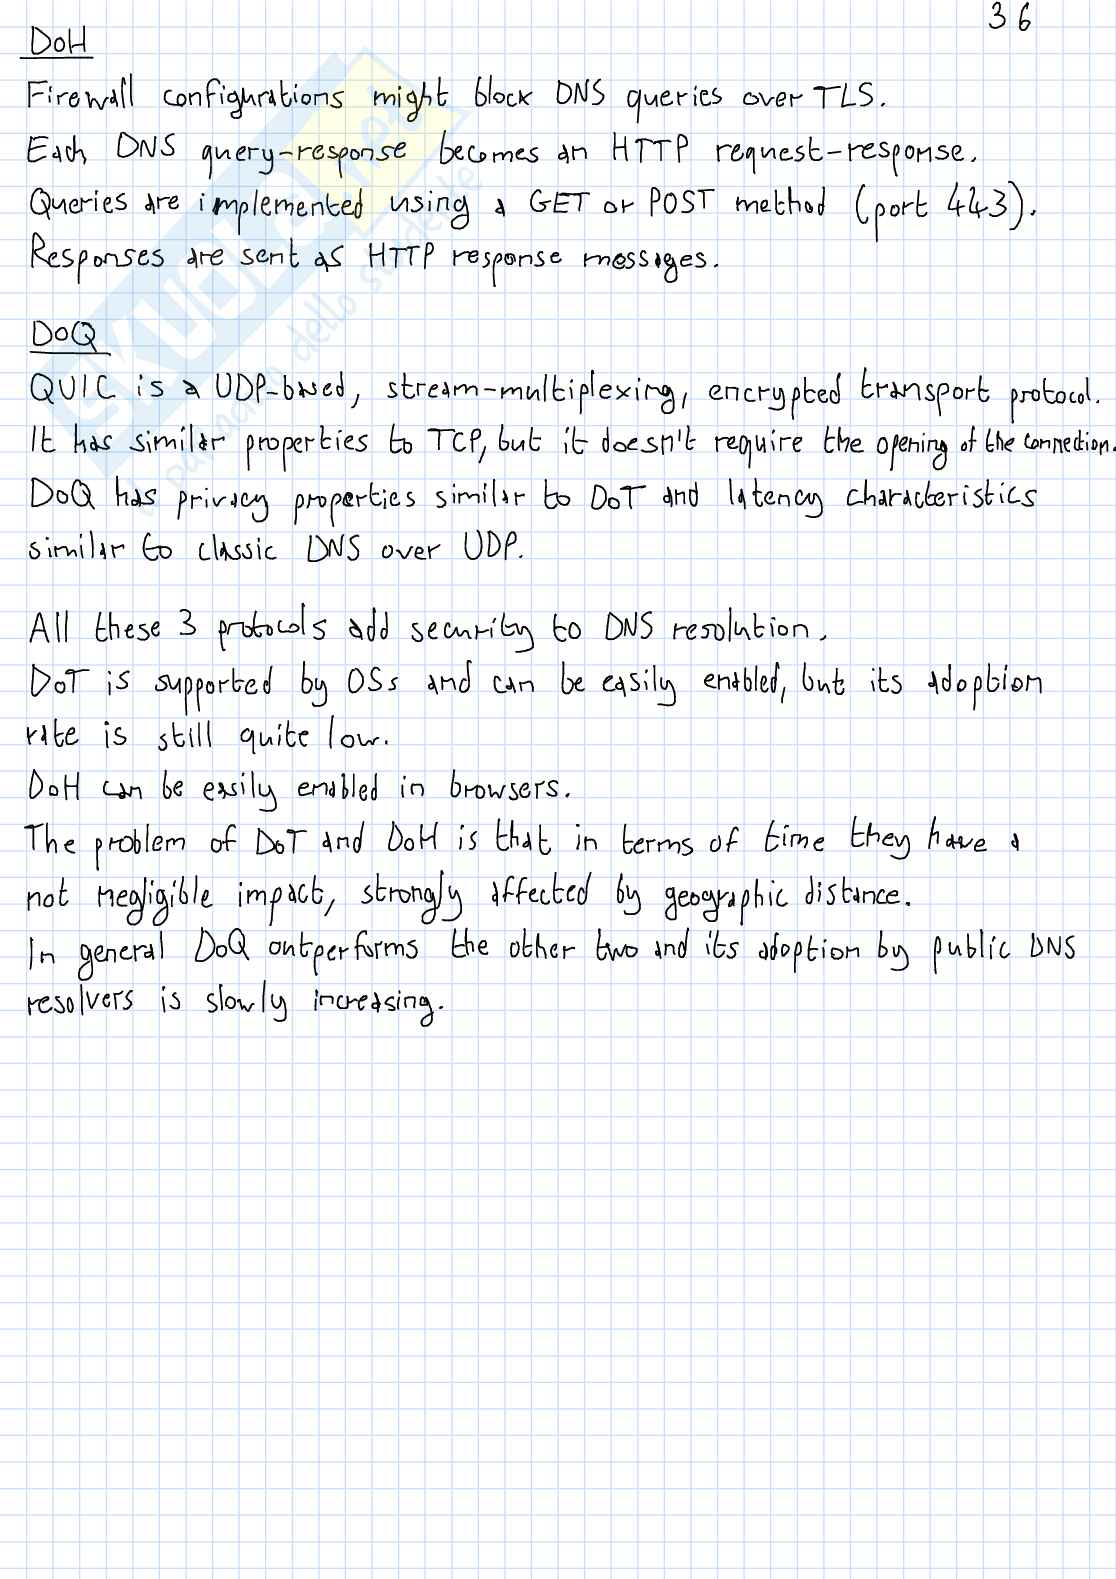 36
DoH
Firewall configurations might block DNS queries over TLS.
Each DNS query-response becomes an HTTP request-response.
Queries are implemented using a GET or POST method (port 443).
Responses are sent as HTTP response messages.
DoQ
QUIC is a UDP-based, stream-multiplexing, encrypted transport protocol.
It has similar properties to TCP, but it doesn't require the opening of the connection.
DoQ has privacy properties similar to DoT and latency characteristics
similar to classic DNS over UDP.
All these 3 protocols add security to DNS resolution.
DoT is supported by OSs and can be easily enabled, but its adoption
rate is still quite low.
DoH can be easily enabled in browsers.
The problem of DoT and DoH is that in terms of time they have a
not negligible impact, strongly affected by geographic distance.
In general DoQ outperforms the other two and its adoption by public DNS
resolvers is slowly increasing.